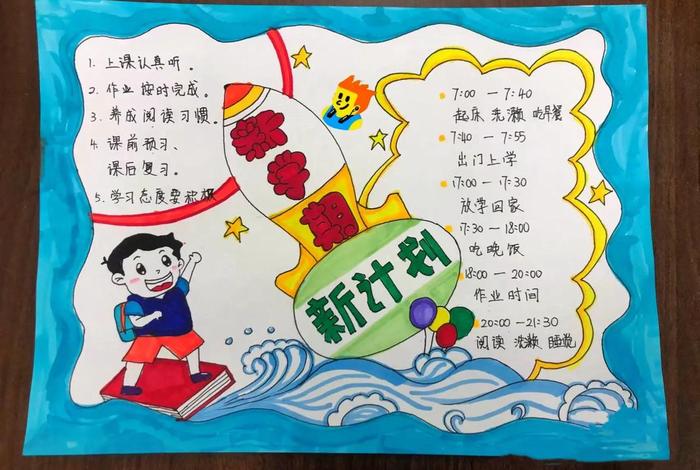 1. 上课认真听。
2. 作业按时完成。
3. 养成阅读习惯。
4. 课前预习、
课后复习。
5. 学习态度要积极
新学期
新计划
7:00 — 7:40
起床 洗漱 吃早餐
7:40 — 7:55
出门上学
17:00 — 17:30
放学回家
17:30 — 18:00
吃晚饭
18:00 — 20:00
作业时间
20:00 — 21:30
阅读 洗漱 睡觉